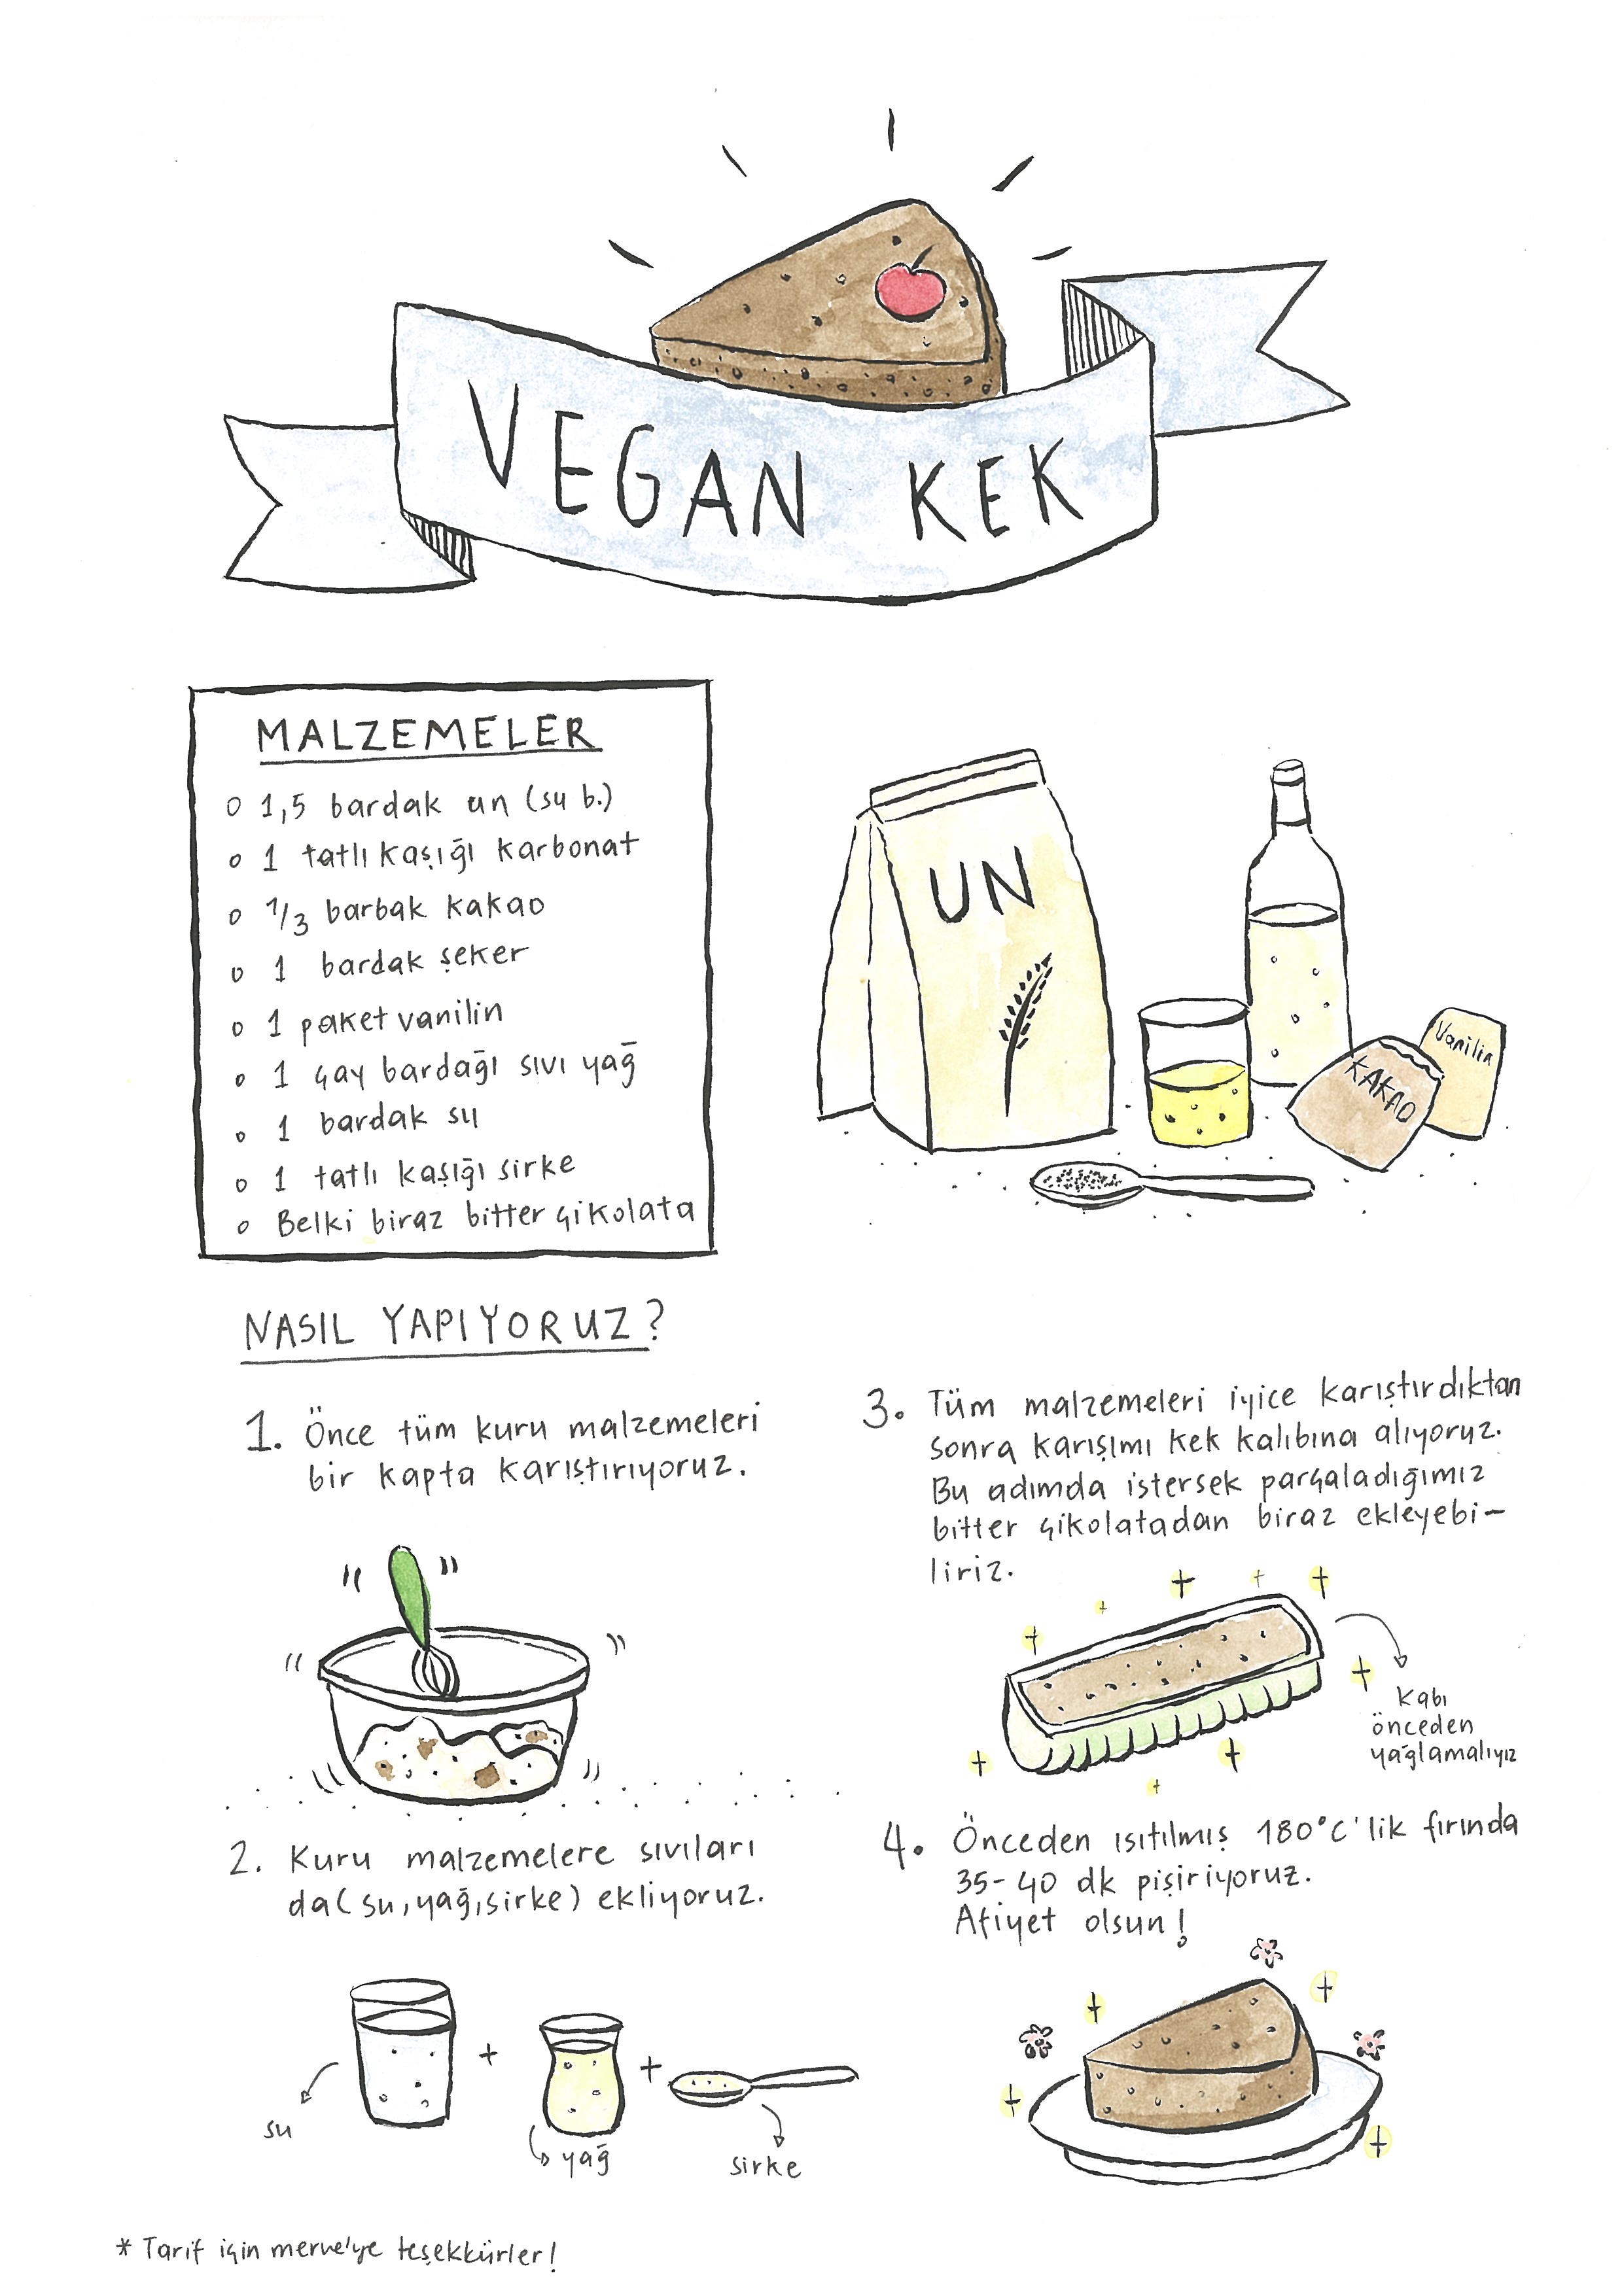 VEGAN KEK
MALZEMELER
o 1,5 bardak un (su b.)
o 1 tatlı kaşığı karbonat
o 1/3 barbak kakao
o 1 bardak şeker
o 1 paket vanilin
o 1 çay bardağı sıvı yağ
o 1 bardak su
o 1 tatlı kaşığı sirke
o Belki biraz bitter çikolata
UN
KAKAO
Vanilin
NASIL YAPIYORUZ?
1. Önce tüm kuru malzemeleri
bir kapta karıştırıyoruz.
2. Kuru malzemelere sıvıları
da (su, yağ, sirke) ekliyoruz.
su
+
yağ
+
sirke
3. Tüm malzemeleri iyice karıştırdıktan
sonra karışımı kek kalıbına alıyoruz.
Bu adımda istersek parçaladığımız
bitter çikolatadan biraz ekleyebi-
liriz.
Kabı
önceden
yağlamalıyız
4. Önceden ısıtılmış 180°C'lik fırında
35-40 dk pişiriyoruz.
Afiyet olsun!
* Tarif için merve'ye teşekkürler!